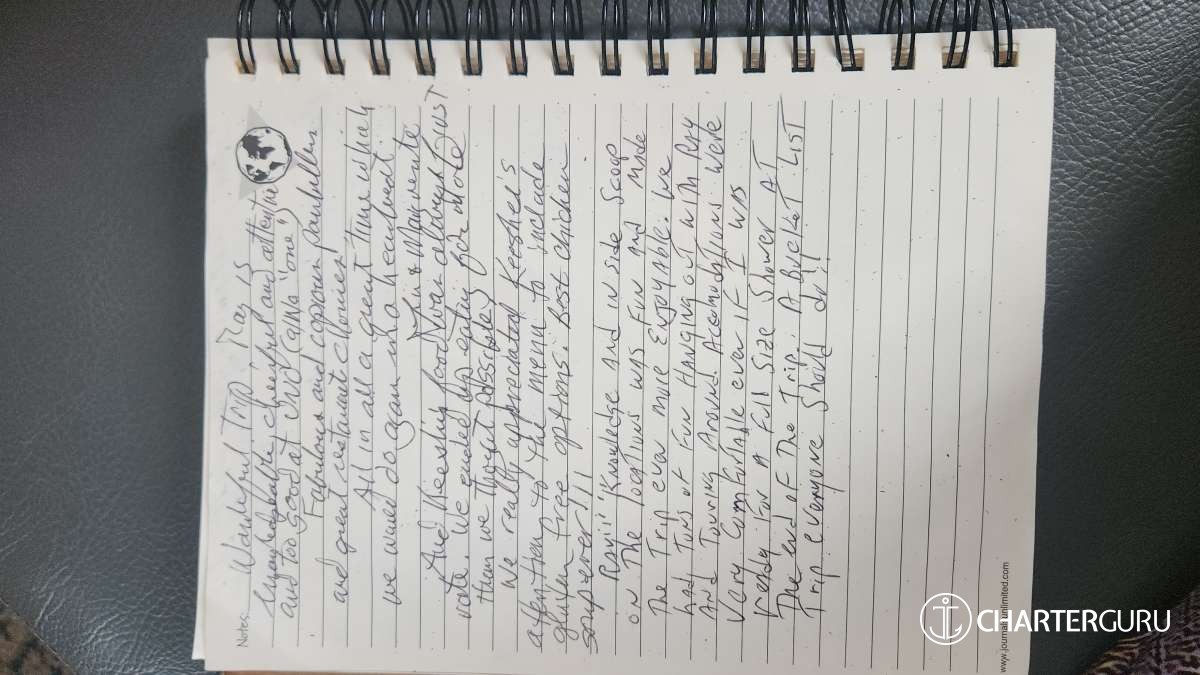 Notes:
Wonderful Trip Ray is
knowledgable cheerful and attentive
and too good at crid game "ome")
Fabulous and opporun
and great restaurant choices!
All in all a great time which
we would do again in a heartbeat.
And Keeshel's food was always just
rate. We ended up eating far more
than we thought possible,
We really appreciated Keeshel's
attention to the menu to include
gluten free options. Best chicken
soup ever!!!
Ray "Knowledge and in side Scoop
on The locations was Fun and Made
The Trip even more Enjoyable. We
had Tons of Fun Hanging out with Ray
And Touring Around. Accomodations were
Very Comfortable even IF I was
ready For A Full Size Shower AT
The end of The Trip. A Bucket List
Trip everyone Should do!!
www.journalsunlimited.com
CHARTERGURU